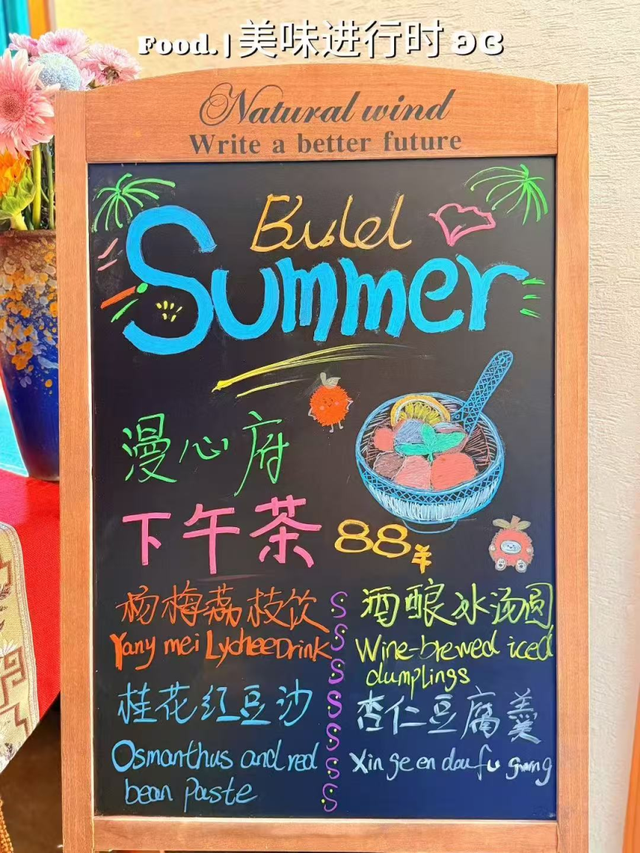 Food. | 美味进行时
Natural wind
Write a better future
Bulel
Summer
漫心府
下午茶 88羊
杨梅荔枝饮
Yany mei Lychee Drink
桂花红豆沙
Osmanthus and red
bean paste
酒酿冰汤圆
Wine-brewed iced
dumplings
杏仁豆腐羹